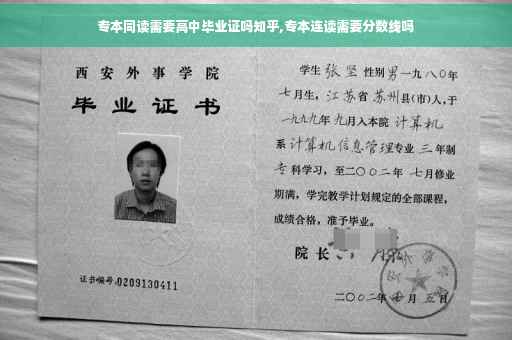 专本同读需要高中毕业证吗知乎,专本连读需要分数线吗
西安外事学院
毕业证书
证书编号:0209130411
学生张坚性别男一九八〇年
七月生，江苏省苏州县(市)人,于
一九九九年九月入本院计算机
系计算机信息管理专业三年制
专科学习，至二〇〇二年七月修业
期满，学完教学计划规定的全部课程，
成绩合格，准予毕业。
院长
二〇〇二年七月五日